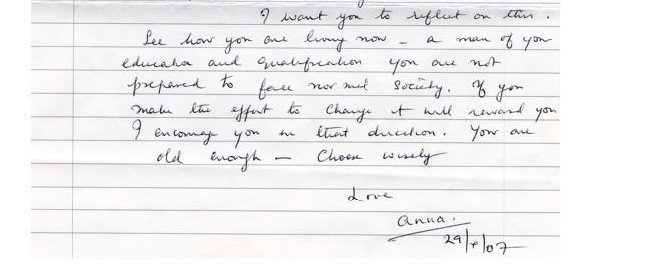 I want you to reflect on this.
See how you are living now – a man of your
education and qualification you are not
prepared to face normal society. If you
make the effort to change it will reward you
I encourage you in that direction. You are
old enough – Choose wisely
Love
Anna.
29/ /07